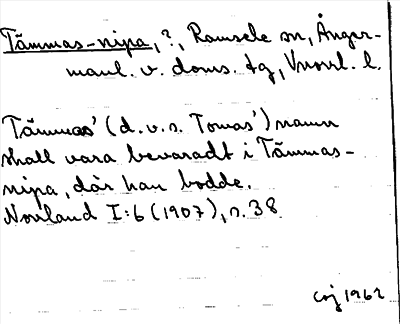 Tåmmas-nipa, ?, Ramsele sn, Ånger-
manl. v. doms. tg, Vnorrl. l.
Tåmmas' (d.v.s. Tomas') namn
skall vara bevaradt i Tåmmas-
nipa, där han bodde.
Norrland I:6 (1907), s. 38
1962